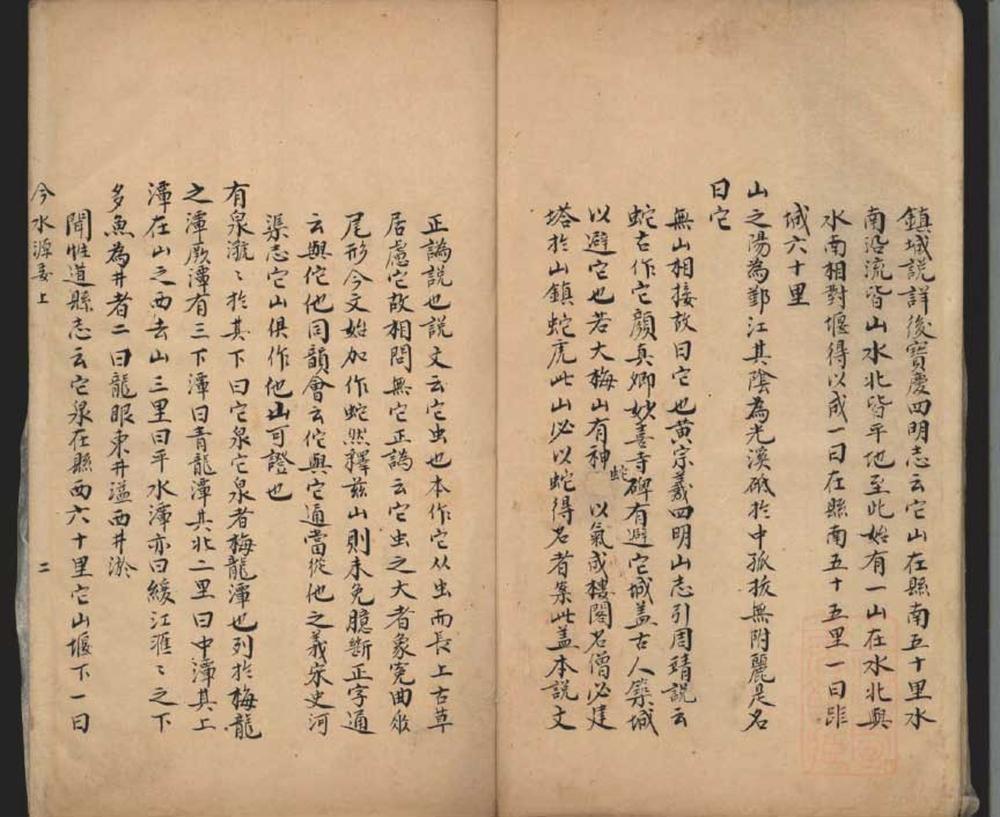 鎮城説詳後寳慶四明志云它山在縣南五十里水
南沿流皆山水北皆平地至此始有一山在水北與
水南相對堰得以成一曰在縣南五十五里一曰距
城六十里
山之陽為鄞江其陰為光溪砥於中孤拔無附麗是名
曰它
無山相接故曰它也黄宗羲四明山志引周靖説云
蛇古作它顔真卿妙喜寺碑有避它城盖古人築城
以避它也若大梅山有神蛇以氣成樓閣名僧必建
塔於山鎮蛇虎此山必以蛇得名者案此盖本説文
正譌説也説文云它虫也本作它从虫而長上古草
居慮它故相問無它正譌云它虫之大者象寃曲垂
尾形今文始加作蛇然釋兹山則未免臆斷正字通
云與佗他同韻會云佗與它通當從他之義宋史河
渠志它山俱作他山可證也
有泉瀧〻於其下曰它泉它泉者梅龍潭也列於梅龍
之潭厥潭有三下潭曰青龍潭其北二里曰中潭其上
潭在山之西去山三里曰平水潭亦曰緩江匯〻之下
多魚為井者二曰龍眼東井溢西井淤
聞性道縣志云它泉在縣西六十里它山堰下一曰
今水源委上
二